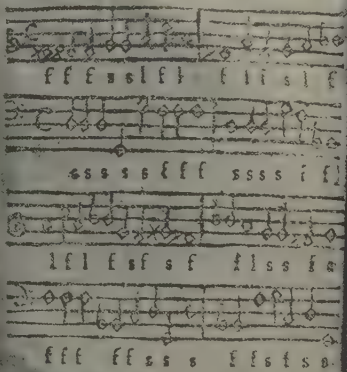 f f f s s l f l f l f s l f
s s s s s f f f s s s s f f l
l f l f s f s f f l s s f a
f f f f f s s s f f s f s s